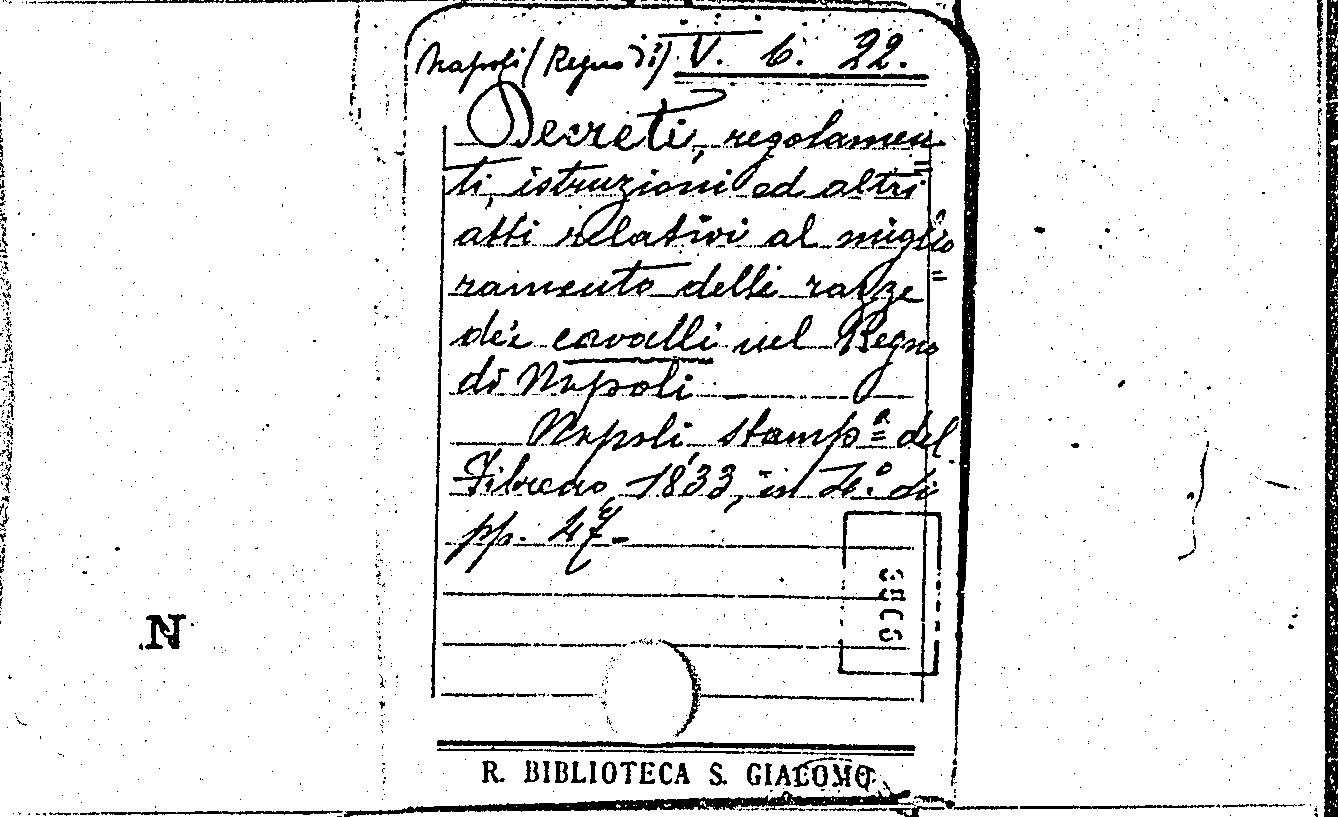 Napoli (Regno di) V. 6. 22.
Decreti, regolamen=
ti, istruzioni ed altri
atti relativi al miglio=
ramento delle razze
dei cavalli nel Regno
di Napoli
Napoli, stampa del
Fibreno, 1833, in 4.° di
pp. 47.
N
R. BIBLIOTECA S. GIACOMO